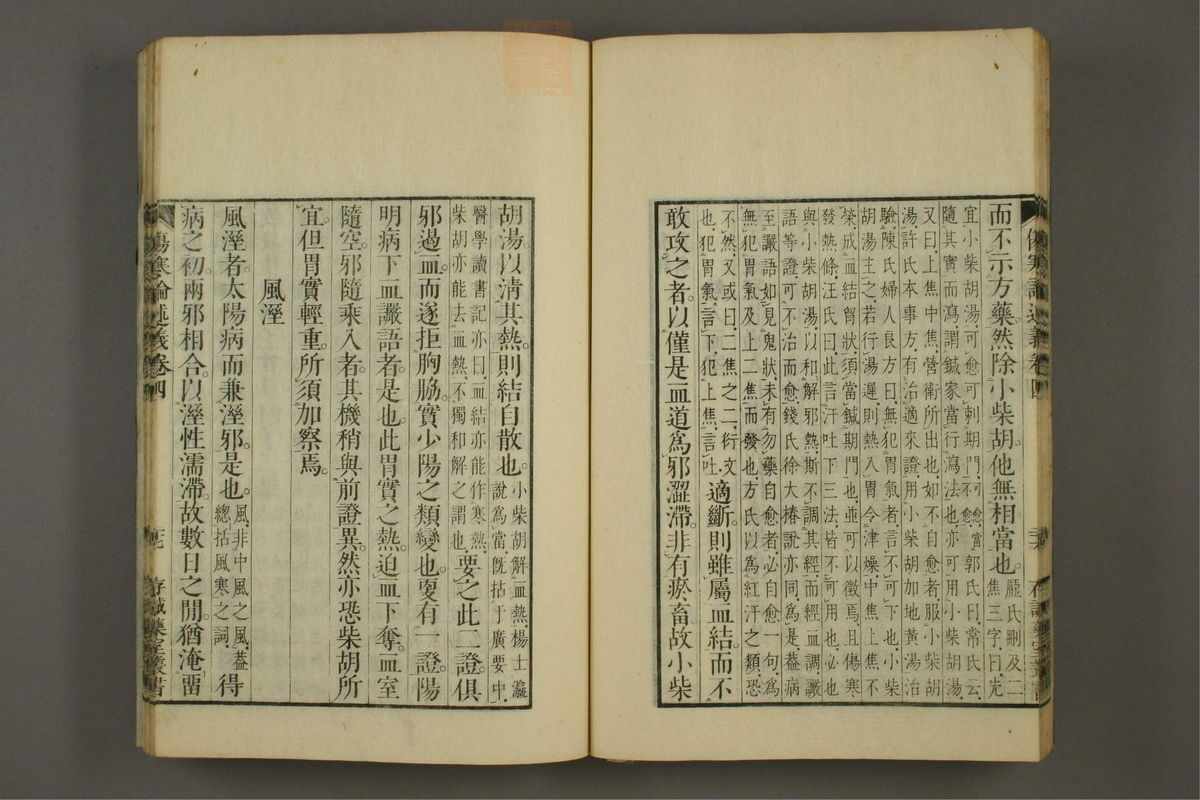 傷寒論述義卷四
存誠藥室叢書
而不示方藥然除小柴胡他無相當也龐氏刪及二
焦三字曰先
宜小柴胡湯可愈可刺期門不愈當郭氏曰常氏云
隨其實而瀉謂鍼家當行瀉法也亦可用小柴胡湯
又曰上焦中焦營衛所出也如不自愈者服小柴胡
湯許氏本事方有治適來證用小柴胡加地黃湯治
驗陳氏婦人良方曰無犯胃氣者言不可下也小柴
胡湯主之若行湯遲則熱入胃令津燥中焦上焦不
榮成血結胷狀須當鍼期門也並可以徵焉且傷寒
發熱條汪氏曰此言汗吐下三法皆不可用也必也
與小柴胡湯以和解邪熱斯不調其經而經血調讝
語等證可不治而愈錢氏徐大椿說亦同爲是葢病
至讝語如見鬼狀未有勿藥自愈者必自愈一句爲
無犯胃氣及上二焦而發也方氏以爲紅汗之類恐
不然又或曰二焦之二衍文
也犯胃氣言下犯上焦言吐適斷則雖屬血結而不
敢攻之者以僅是血道爲邪澀滯非有瘀畜故小柴
胡湯以清其熱則結自散也小柴胡解血熱楊士瀛
說爲當旣拈于廣要中
醫學讀書記亦曰血結亦能作寒熱
柴胡亦能去血熱不獨和解之謂也要之此二證俱
邪遏血而遂拒胸脇實少陽之類變也更有一證陽
明病下血讝語者是也此胃實之熱迫血下奪血室
隨空邪隨乘入者其機稍與前證異然亦恐柴胡所
宜但胃實輕重所須加察焉
風溼
風溼者太陽病而兼溼邪是也風非中風之風葢
總括風寒之詞得
病之初兩邪相合以溼性濡滯故數日之閒猶淹畱
傷寒論述義卷四
存誠藥室叢書